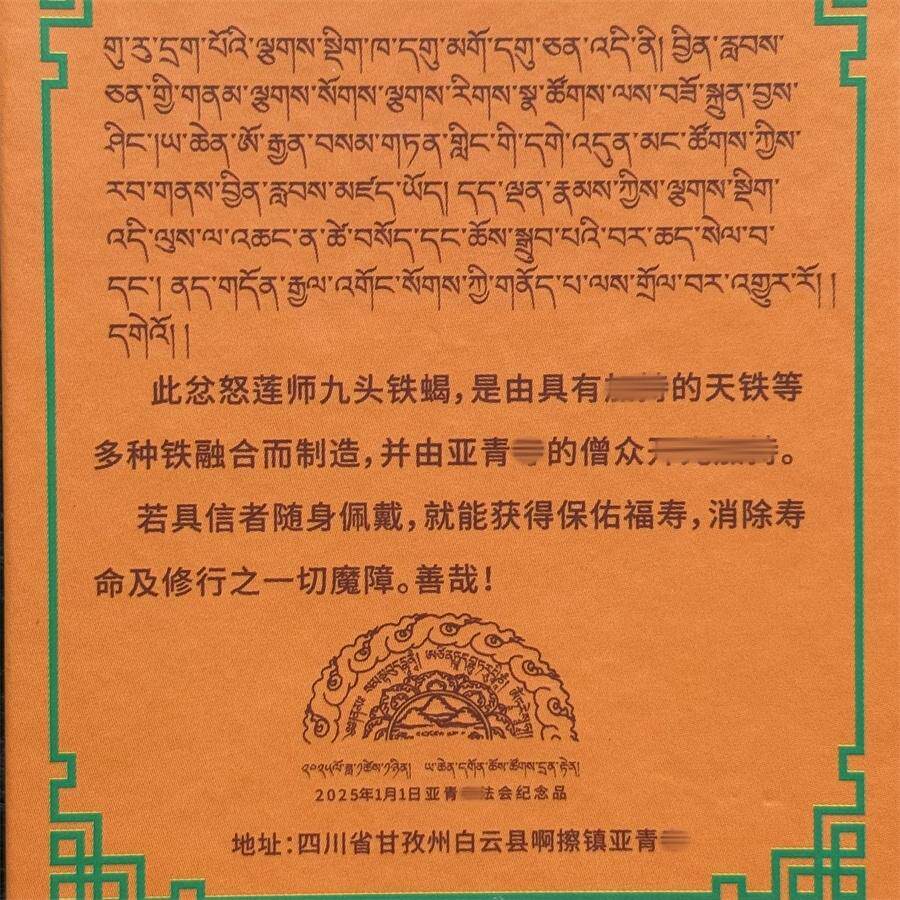 གུ་རུ་དྲག་པོའི་ལྕགས་སྡིག་ཁ་དགུ་མགོ་དགུ་ཅན་འདི་ནི། བྱིན་རླབས་
ཅན་གྱི་གནམ་ལྕགས་སོགས་ལྕགས་རིགས་སྣ་ཚོགས་ལས་བཟོ་སྐྲུན་བྱས་
ཤིང་།ཡ་ཆེན་ཨོ་རྒྱན་བསམ་གཏན་གླིང་གི་དགེ་འདུན་མང་ཚོགས་ཀྱིས་
རབ་གནས་བྱིན་རླབས་མཛད་ཡོད། དད་ལྡན་རྣམས་ཀྱིས་ལྕགས་སྡིག་
འདི་ལུས་ལ་འཆང་ན་ཚེ་བསོད་དང་ཆོས་སྒྲུབ་པའི་བར་ཆད་སེལ་བ་
དང་། ནད་གདོན་རྒྱལ་འགོང་སོགས་ཀྱི་གནོད་པ་ལས་གྲོལ་བར་འགྱུར་རོ། །
དགེའོ། །
此忿怒莲师九头铁蝎，是由具有的天铁等
多种铁融合而制造，并由亚青的僧众。
若具信者随身佩戴，就能获得保佑福寿，消除寿
命及修行之一切魔障。善哉！
༢༠༢༥ལོ་ཟླ་༡ཚེས་༡ཉིན། ཡ་ཆེན་དགོན་ཆོས་ཚོགས་དྲན་རྟེན།
2025年1月1日亚青法会纪念品
地址：四川省甘孜州白云县啊擦镇亚青